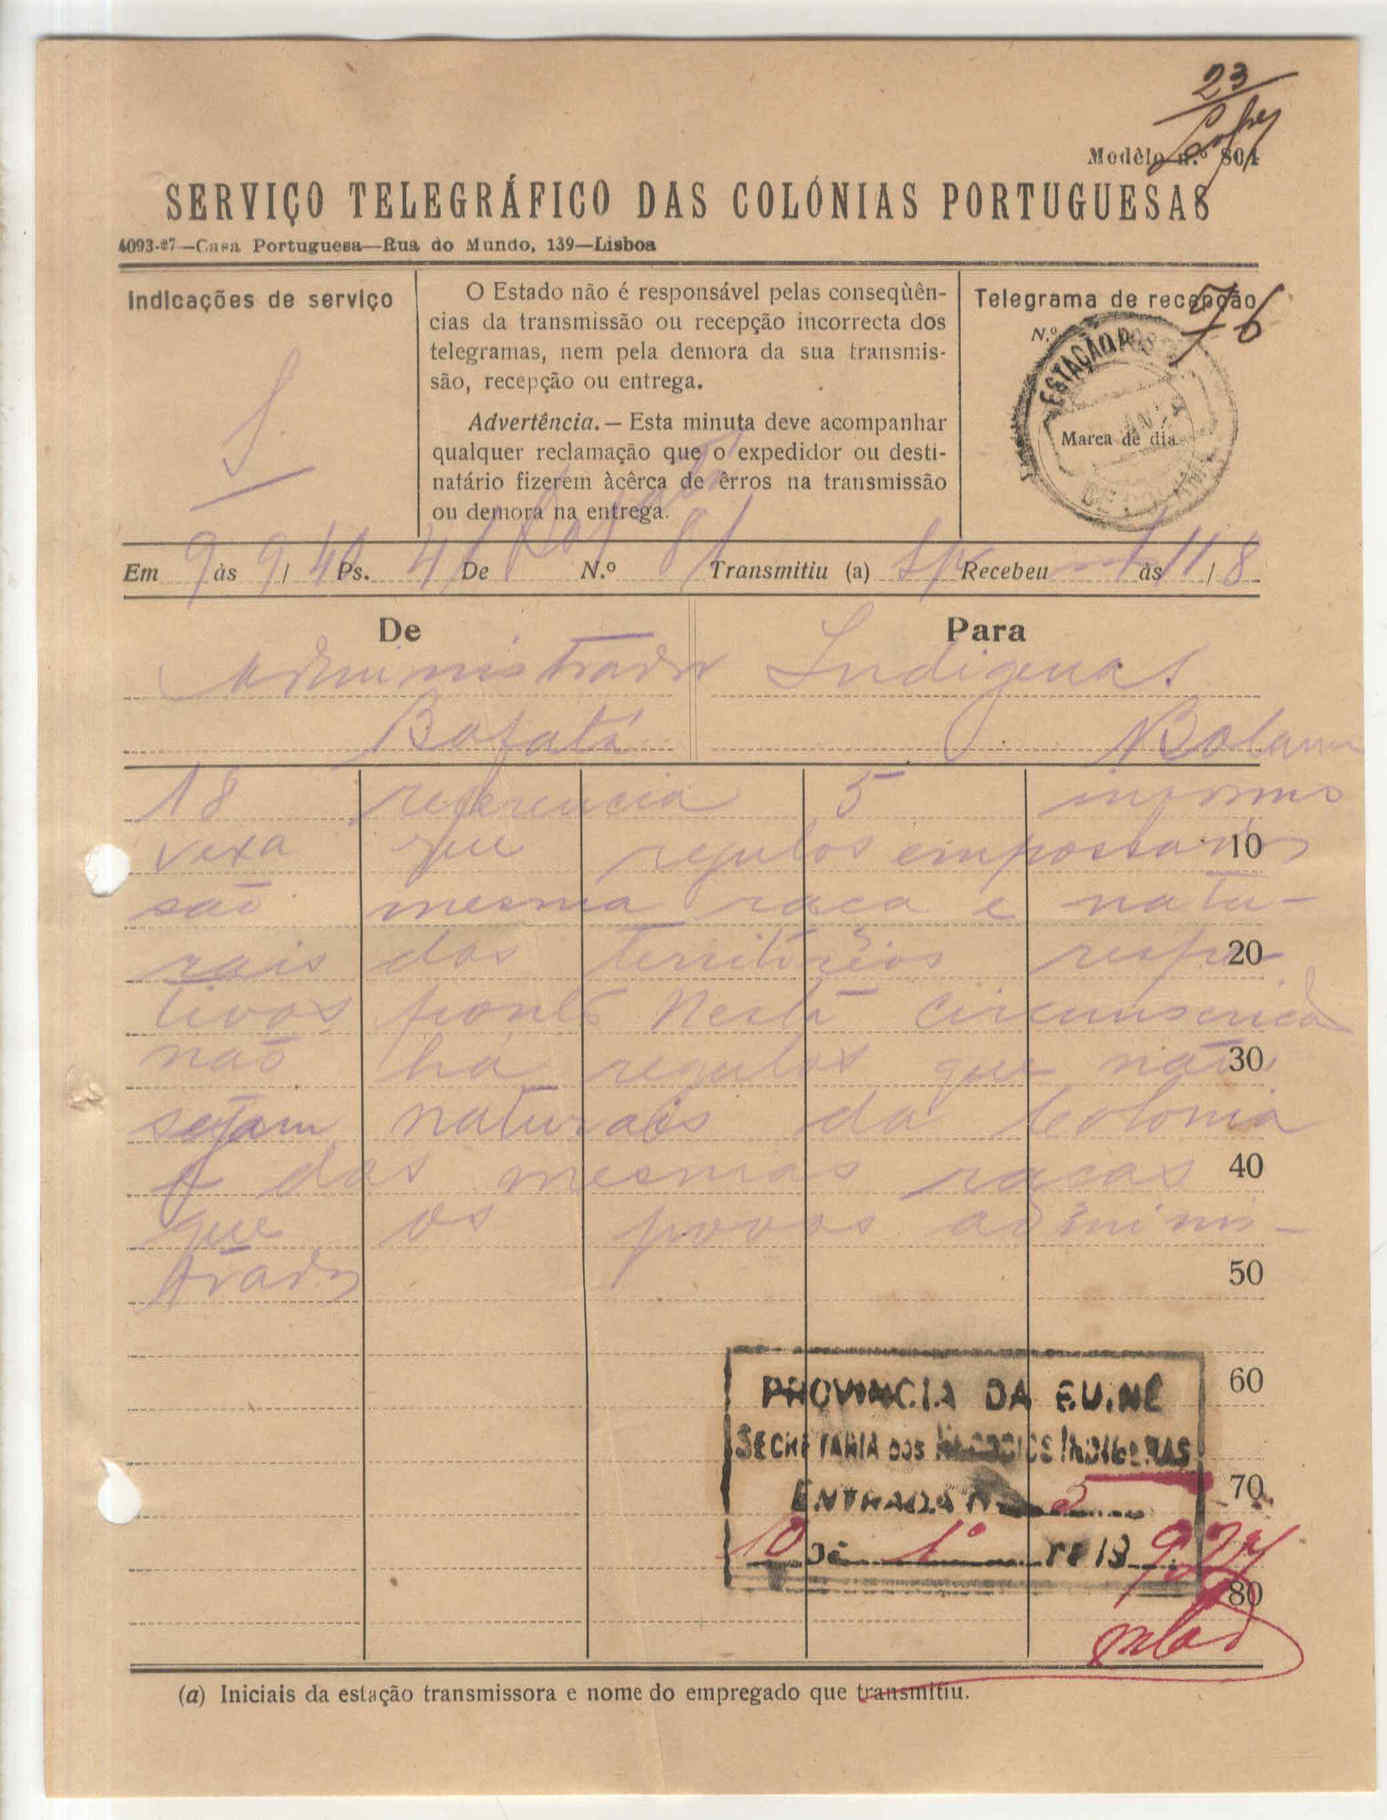 23
Modêlo n.º 804
SERVIÇO TELEGRÁFICO DAS COLÓNIAS PORTUGUESAS
4093-27—Casa Portuguesa—Rua do Mundo, 139—Lisboa
Indicações de serviço
S.
O Estado não é responsável pelas conseqùên-
cias da transmissão ou recepção incorrecta dos
telegramas, nem pela demora da sua transmis-
são, recepção ou entrega.
Advertência.—Esta minuta deve acompanhar
qualquer reclamação que o expedidor ou desti-
natário fizerem àcêrca de êrros na transmissão
ou demora na entrega.
Telegrama de recepção
N.º 76
ESTAÇÃO
Marca de dia
Em 9 às 9 / 40 Ps. 41 De N.º 81 Transmitiu (a) Recebeu às 11 / 8
De
Para
Administrador
Indigenas
Bafatá
Bolama
18 referencia 5 informo
vexa que regulos empossados 10
são mesma raca e natu-
rais dos territórios respe 20
tivos ponto Nesta circunscricão
não há regulos que não 30
sejam naturais da Colonia
e das mesmas racas 40
que os povos adminis-
trados
50
60
70
80
PROVINCIA DA GUINÉ
SECRETARIA DOS NEGOCIOS INDIGENAS
ENTRADA N.º 5
10 DE 1º DE 19
(a) Iniciais da estação transmissora e nome do empregado que transmitiu.